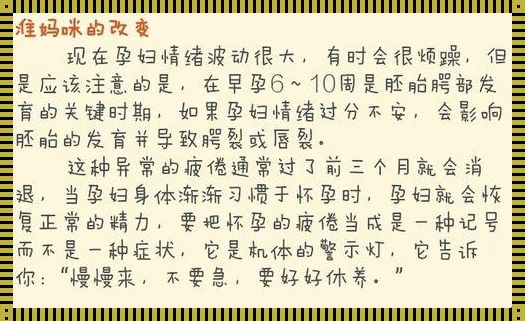 准妈咪的改变
现在孕妇情绪波动很大，有时会很烦躁，但
是应该注意的是，在早孕6~10周是胚胎腭部发
育的关键时期，如果孕妇情绪过分不安，会影响
胚胎的发育并导致腭裂或唇裂。
这种异常的疲倦通常过了前三个月就会消
退，当孕妇身体渐渐习惯于怀孕时，孕妇就会恢
复正常的精力，要把怀孕的疲倦当成是一种记号
而不是一种症状，它是机体的警示灯，它告诉
你：“慢慢来，不要急，要好好休养。”